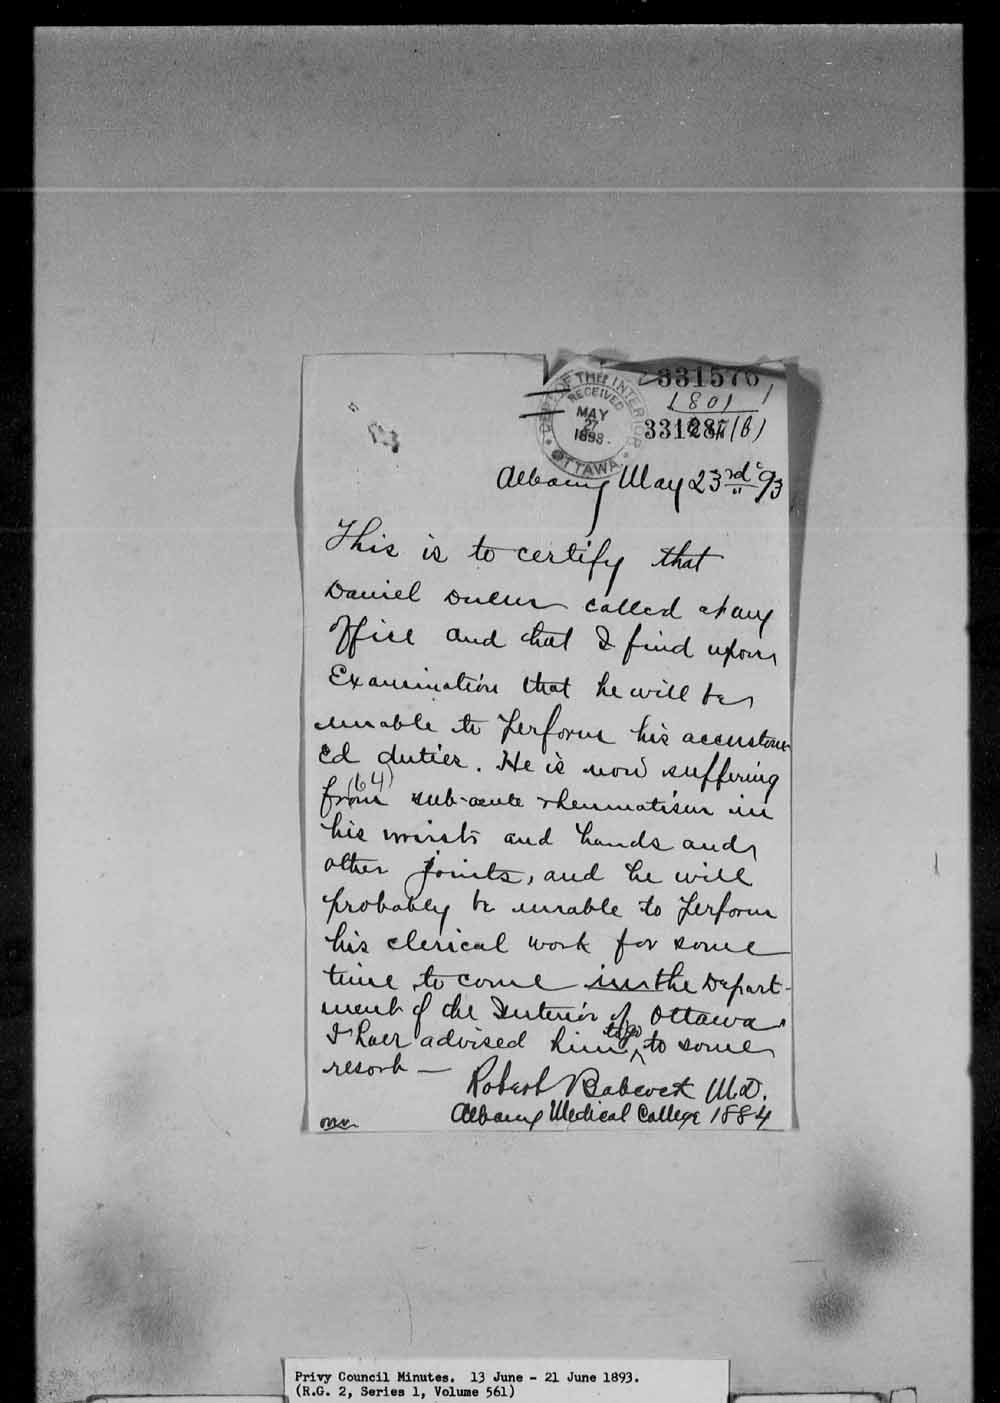 331576
1801
331287 (B)
DEPT. OF THE INTERIOR
RECEIVED
MAY
27
1893.
OTTAWA
Albany May 23rd 93
This is to certify that
Daniel called at my
office and that I find upon
Examination that he will be
unable to perform his accustom-
ed duties. He is now suffering
(64)
from sub-acute rheumatism in
his wrists and hands and
other joints, and he will
probably be unable to perform
his clerical work for some
time to come in the Depart-
ment of the Interior of Ottawa
I have advised him to go to some
resort —
Robert Babcock M.D.
Albany Medical College 1884
over
Privy Council Minutes. 13 June - 21 June 1893.
(R.G. 2, Series 1, Volume 561)